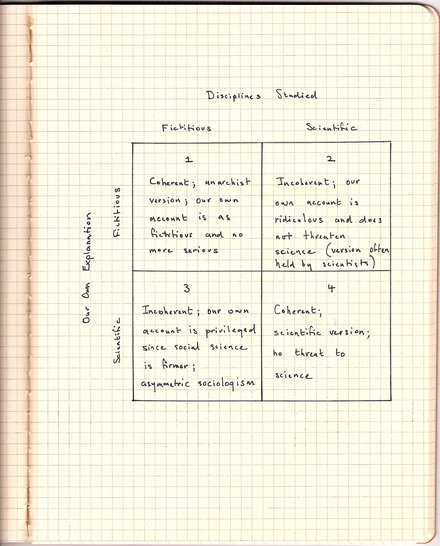 Disciplines Studied
Fictitious Scientific
Our Own Explanation
Fictitious
Scientific
1
Coherent; anarchist
version; our own
account is as
fictitious and no
more serious
2
Incoherent; our
own account is
ridiculous and does
not threaten
science (version often
held by scientists)
3
Incoherent; our own
account is privileged
since social science
is firmer;
asymmetric sociologism
4
Coherent;
scientific version;
no threat to
science